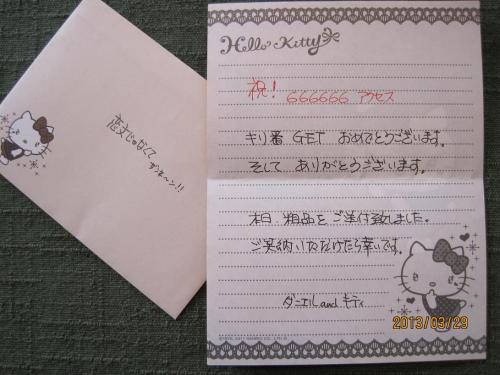 恋文じゃなくて
ザンネ～ン!!
Hello Kitty
祝!
666666 アクセス
キリ番 GET おめでとうございます。
そして ありがとうございます。
本日、粗品をご送付致しました。
ご笑納いただけたら幸いです。
ダニエル and キティ
2013/03/29